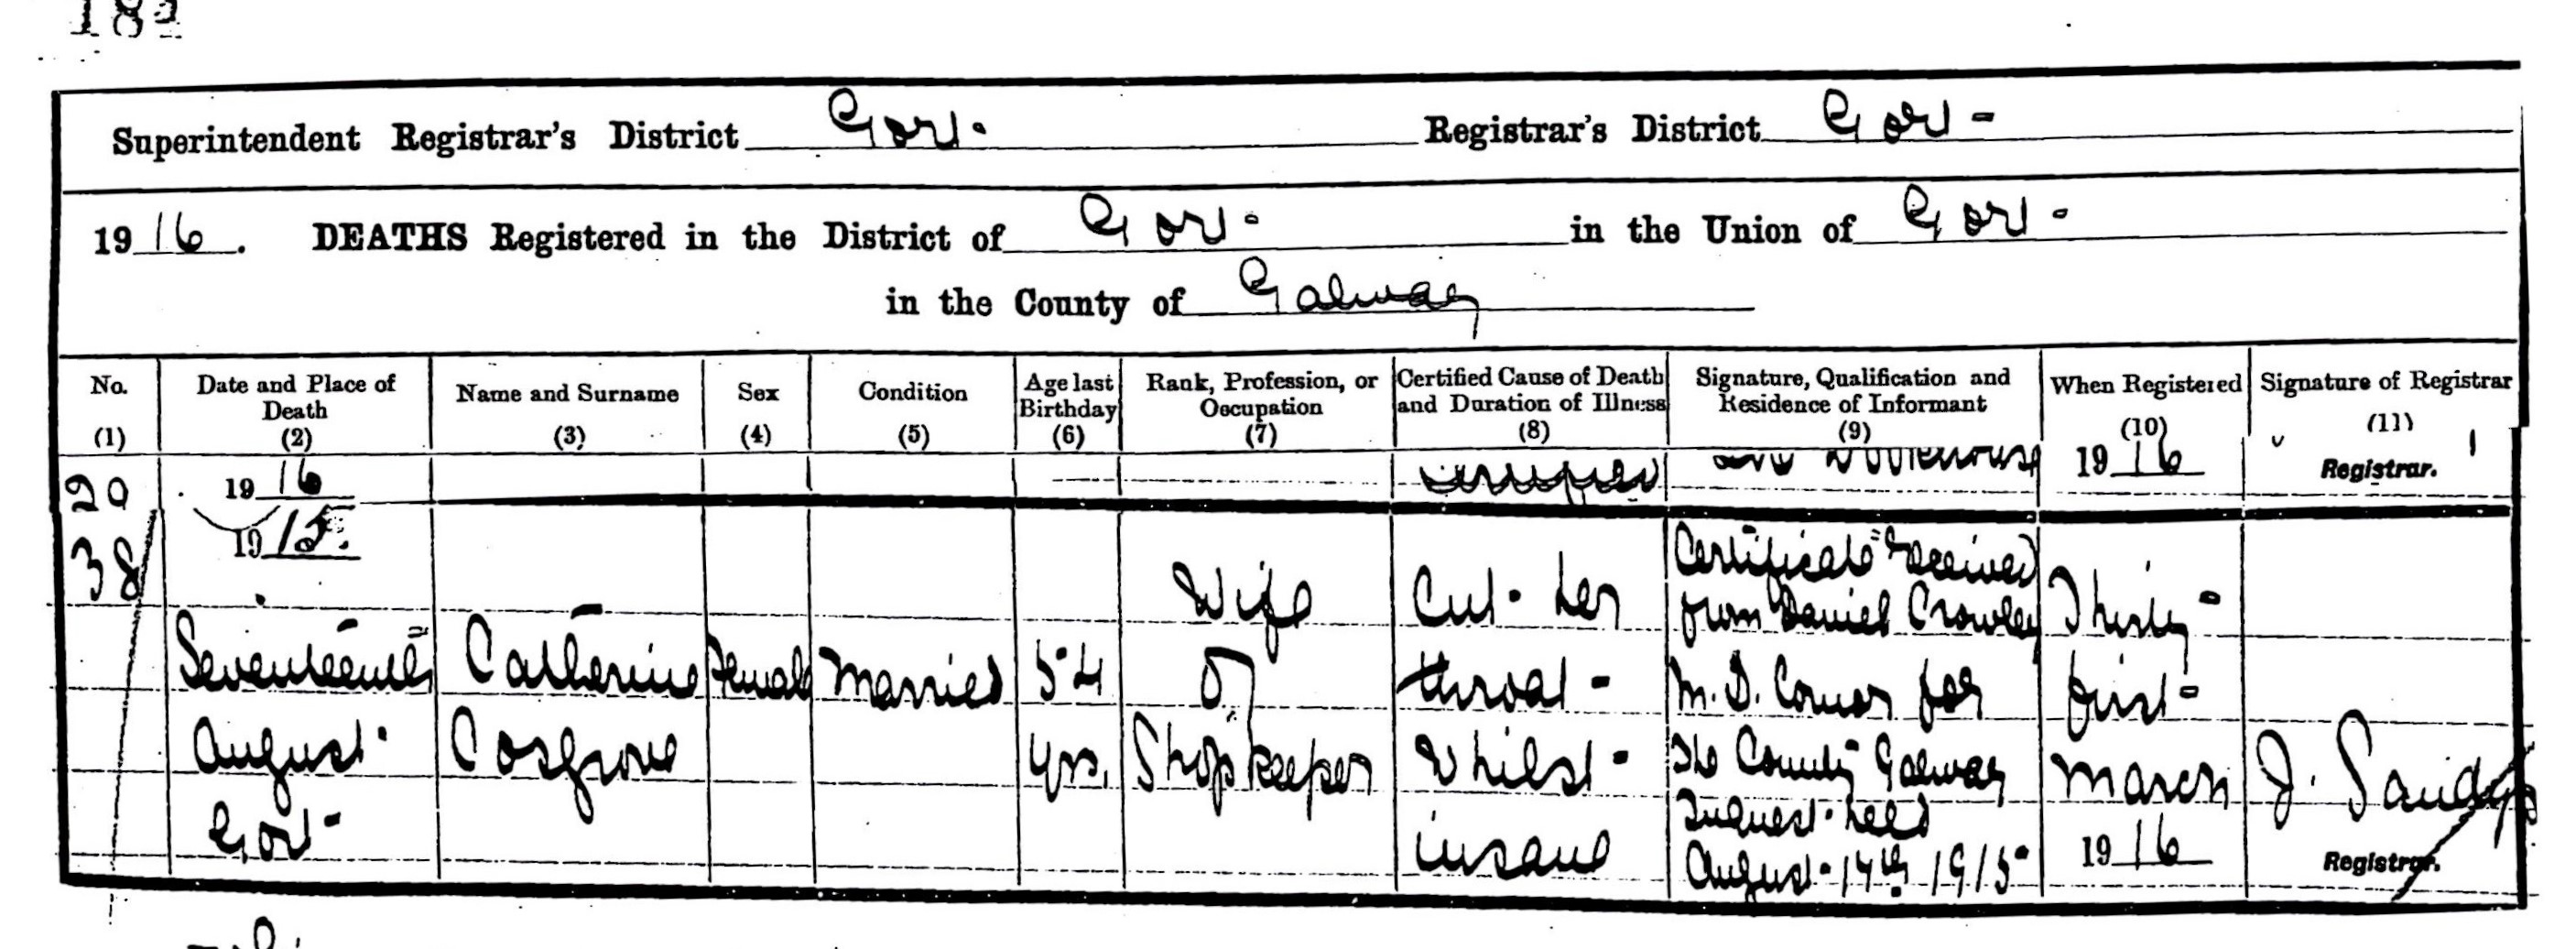 Superintendent Registrar's District Gort. Registrar's District Gort -
1916. DEATHS Registered in the District of Gort. in the Union of Gort.
in the County of Galway
No. (1)
Date and Place of Death (2)
Name and Surname (3)
Sex (4)
Condition (5)
Age last Birthday (6)
Rank, Profession, or Occupation (7)
Certified Cause of Death and Duration of Illness (8)
Signature, Qualification and Residence of Informant (9)
When Registered (10)
Signature of Registrar (11)
20
1916
Certified
Workhouse
1916
Registrar.
38
1915.
Seventeenth
August
Gort -
Catherine
Cosgrove
Female
Married
54
yrs.
Wife
of
Shopkeeper
Cut her
throat -
Whilst -
insane
Certificate received
from Daniel Crowley
M.D. Coroner for
The County Galway
Inquest held
August 17th 1915
Thirty -
first -
March
1916
Registrar.